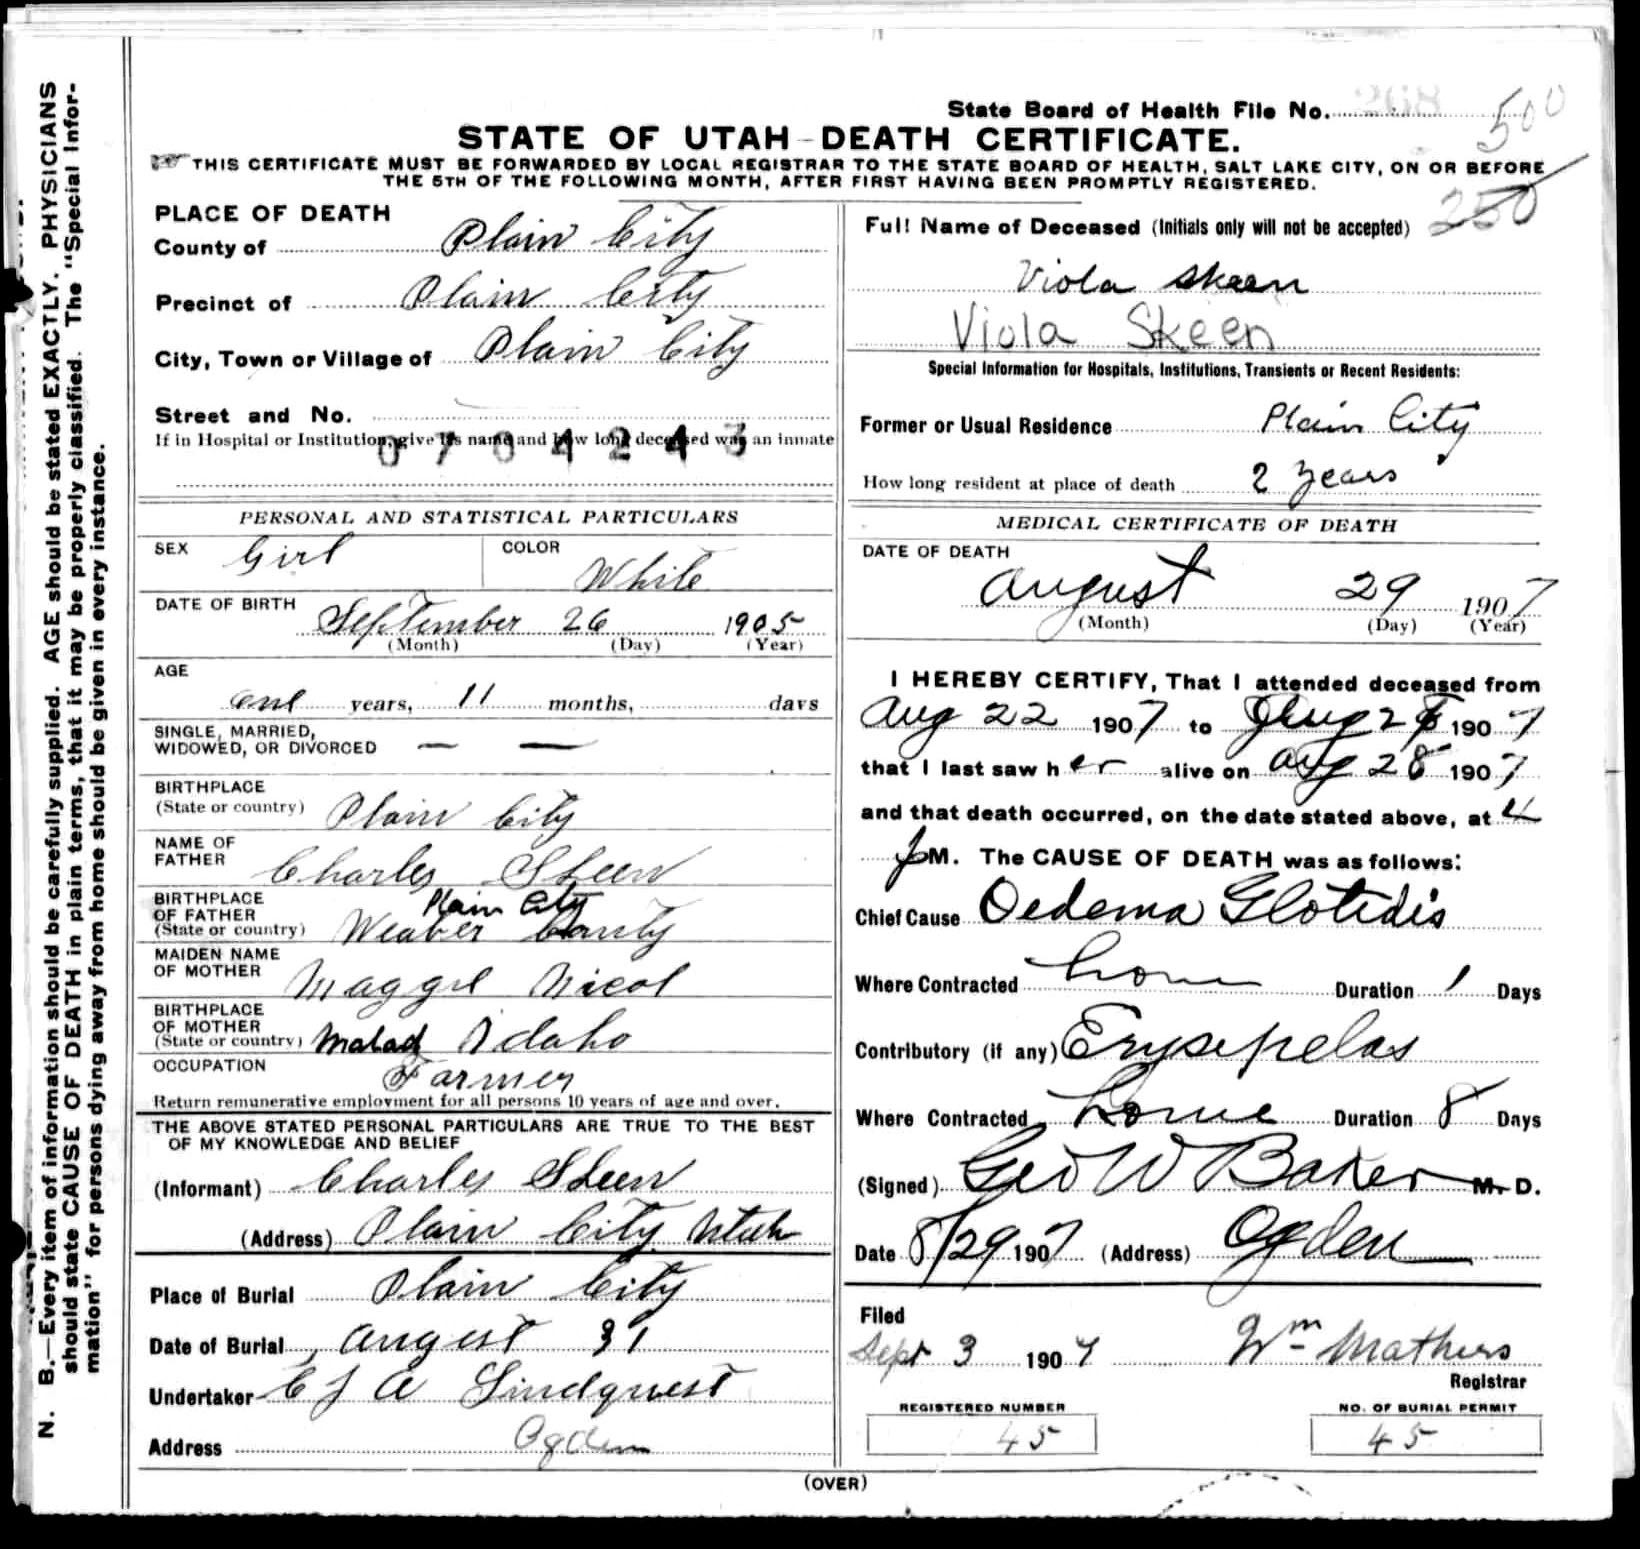 N. B.—Every item of information should be carefully supplied. AGE should be stated EXACTLY. PHYSICIANS
should state CAUSE OF DEATH in plain terms, that it may be properly classified. The "Special Infor-
mation" for persons dying away from home should be given in every instance.
State Board of Health File No. 268 500
STATE OF UTAH—DEATH CERTIFICATE.
THIS CERTIFICATE MUST BE FORWARDED BY LOCAL REGISTRAR TO THE STATE BOARD OF HEALTH, SALT LAKE CITY, ON OR BEFORE
THE 5TH OF THE FOLLOWING MONTH, AFTER FIRST HAVING BEEN PROMPTLY REGISTERED.
250
PLACE OF DEATH
County of Plain City
Precinct of Plain City
City, Town or Village of Plain City
Street and No.
If in Hospital or Institution, give its name and how long deceased was an inmate
0704243
PERSONAL AND STATISTICAL PARTICULARS
SEX Girl COLOR White
DATE OF BIRTH September 26 1905
(Month) (Day) (Year)
AGE
one years, 11 months, days
SINGLE, MARRIED,
WIDOWED, OR DIVORCED — —
BIRTHPLACE
(State or country) Plain City
NAME OF
FATHER Charles Skeen
BIRTHPLACE
OF FATHER Plain City
(State or country) Weaber County
MAIDEN NAME
OF MOTHER Maggie Nicol
BIRTHPLACE
OF MOTHER
(State or country) Malad Idaho
OCCUPATION Farmer
Return remunerative employment for all persons 10 years of age and over.
THE ABOVE STATED PERSONAL PARTICULARS ARE TRUE TO THE BEST
OF MY KNOWLEDGE AND BELIEF
(Informant) Charles Skeen
(Address) Plain City Utah
Place of Burial Plain City
Date of Burial August 31
Undertaker C J A Lindquest
Address Ogden
Full Name of Deceased (Initials only will not be accepted)
Viola Skeen
Viola Skeen
Special Information for Hospitals, Institutions, Transients or Recent Residents:
Former or Usual Residence Plain City
How long resident at place of death 2 years
MEDICAL CERTIFICATE OF DEATH
DATE OF DEATH
August 29 1907
(Month) (Day) (Year)
I HEREBY CERTIFY, That I attended deceased from
Aug 22 1907 to Aug 28 1907
that I last saw her alive on Aug 28 1907
and that death occurred, on the date stated above, at 4
pM. The CAUSE OF DEATH was as follows:
Chief Cause Oedema Glotidis
Where Contracted home Duration 1 Days
Contributory (if any) Erysipelas
Where Contracted Home Duration 8 Days
(Signed) Geo W Baker M. D.
Date 8/29 1907 (Address) Ogden
Filed
Sept 3 1907 Wm Mathers
Registrar
REGISTERED NUMBER NO. OF BURIAL PERMIT
45 45
(OVER)